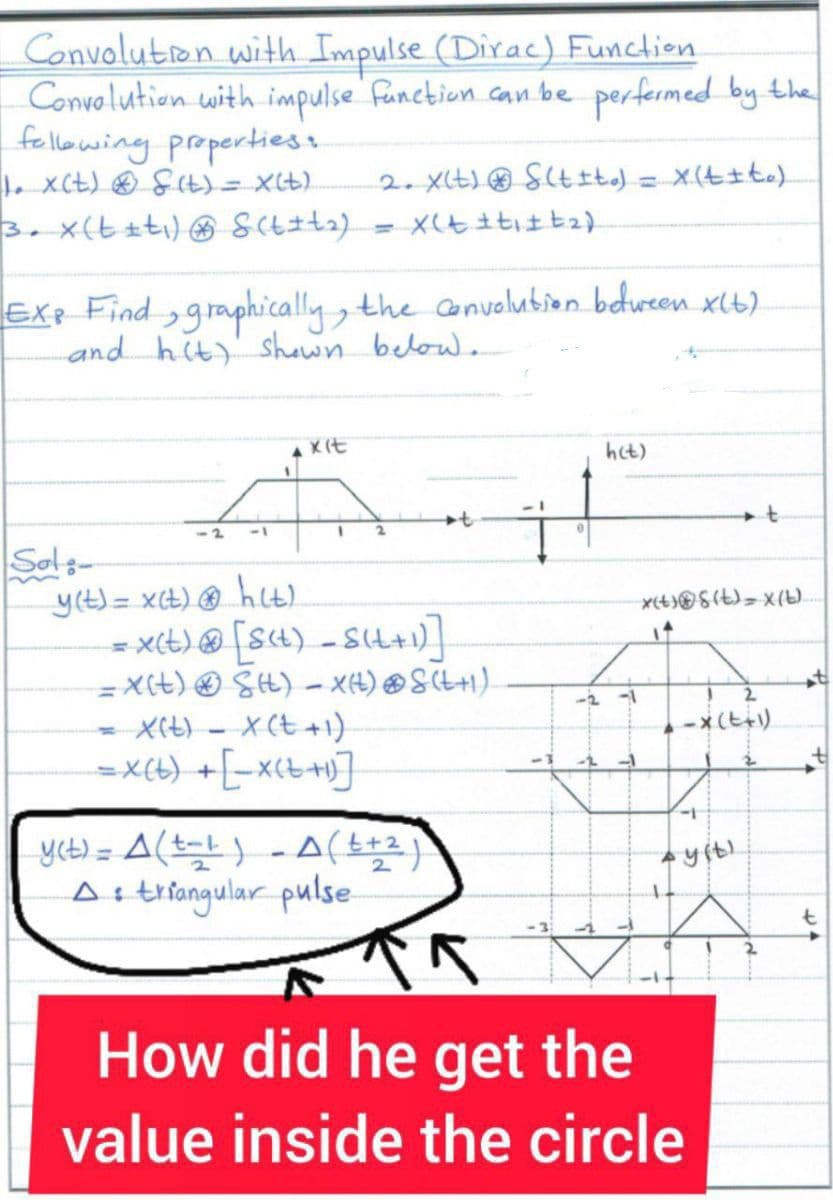 Convolution with Impulse (Dirac) Function
Convolution with impulse function can be performed by the
following properties:
1. x(t) ⊛ δ(t) = x(t)   2. x(t) ⊛ δ(t±t₀) = x(t±t₀)
3. x(t±t₁) ⊛ δ(t±t₂) = x(t±t₁±t₂)
Ex: Find, graphically, the convolution between x(t)
and h(t) shown below.
x(t
h(t)
1
-2 -1 1 2 t
-1 0 t
Sol:-
y(t) = x(t) ⊛ h(t)
= x(t) ⊛ [δ(t) - δ(t+1)]
= x(t) ⊛ δ(t) - x(t) ⊛ δ(t+1)
= x(t) - x(t+1)
= x(t) + [-x(t+1)]
y(t) = Δ((t-1)/2) - Δ((t+2)/2)
Δ : triangular pulse
x(t)⊛δ(t)=x(t)
1
-2 -1 1 2 t
-x(t+1)
-3 -2 -1 1 2 t
-1
y(t)
1
-3 -2 -1 0 1 2 t
-1
How did he get the
value inside the circle